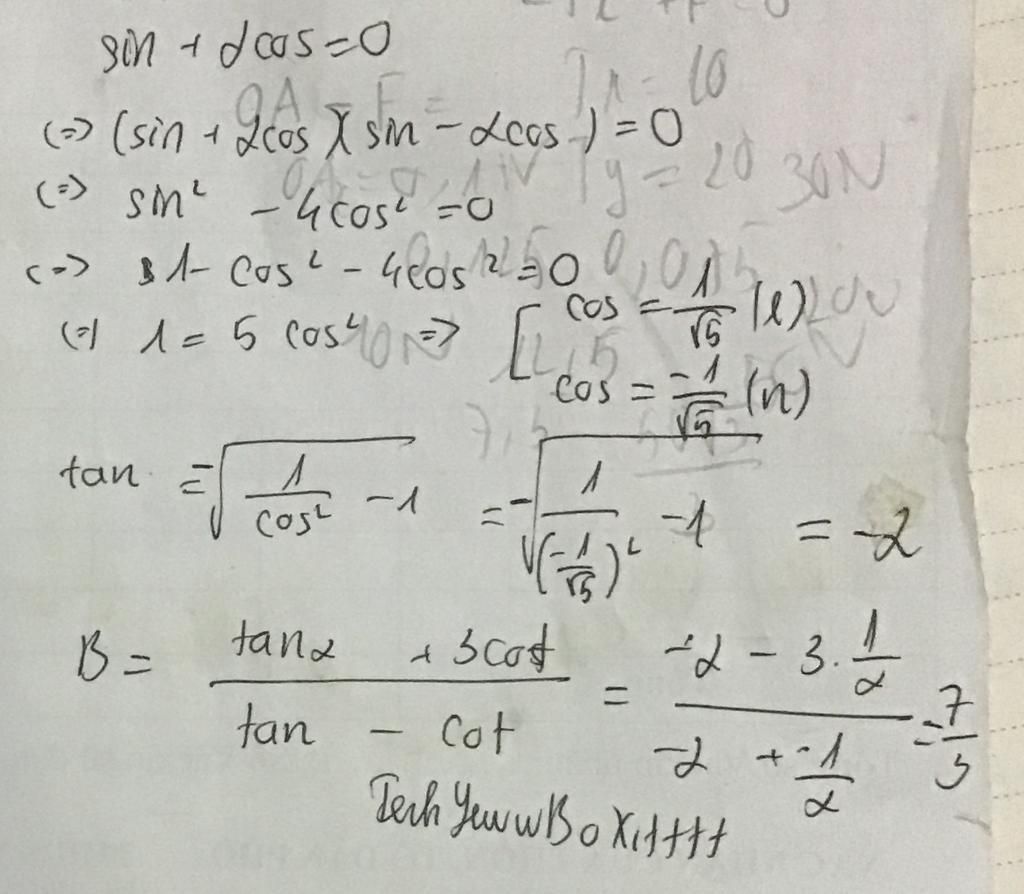 sin + 2cos = 0
<=> (sin + 2cos)(sin - 2cos) = 0
<=> sin² - 4cos² = 0
<=> 1 - cos² - 4cos² = 0
<=> 1 = 5 cos² => [ cos = 1/√5 (l)
cos = -1/√5 (n)
tan = -√(1/cos² - 1) = -√(1/(-1/√5)² - 1) = -2
B = (tanα + 3cot)/(tan - cot) = (-2 - 3.1/2)/(-2 + -1/2) = 7/3